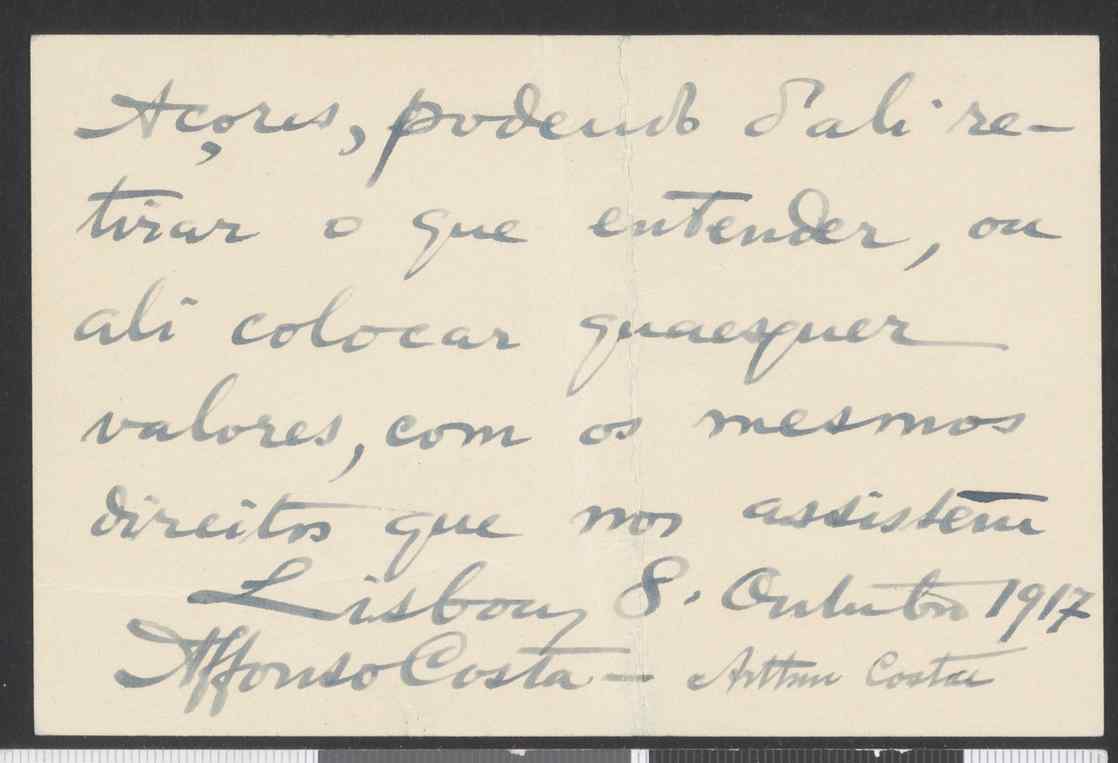 Açores, podendo d'ali re-
tirar o que entender, ou
ali colocar quaesquer
valores, com os mesmos
direitos que nos assistem
Lisboa, 8. Outubro 1917
Affonso Costa — Arthur Costa